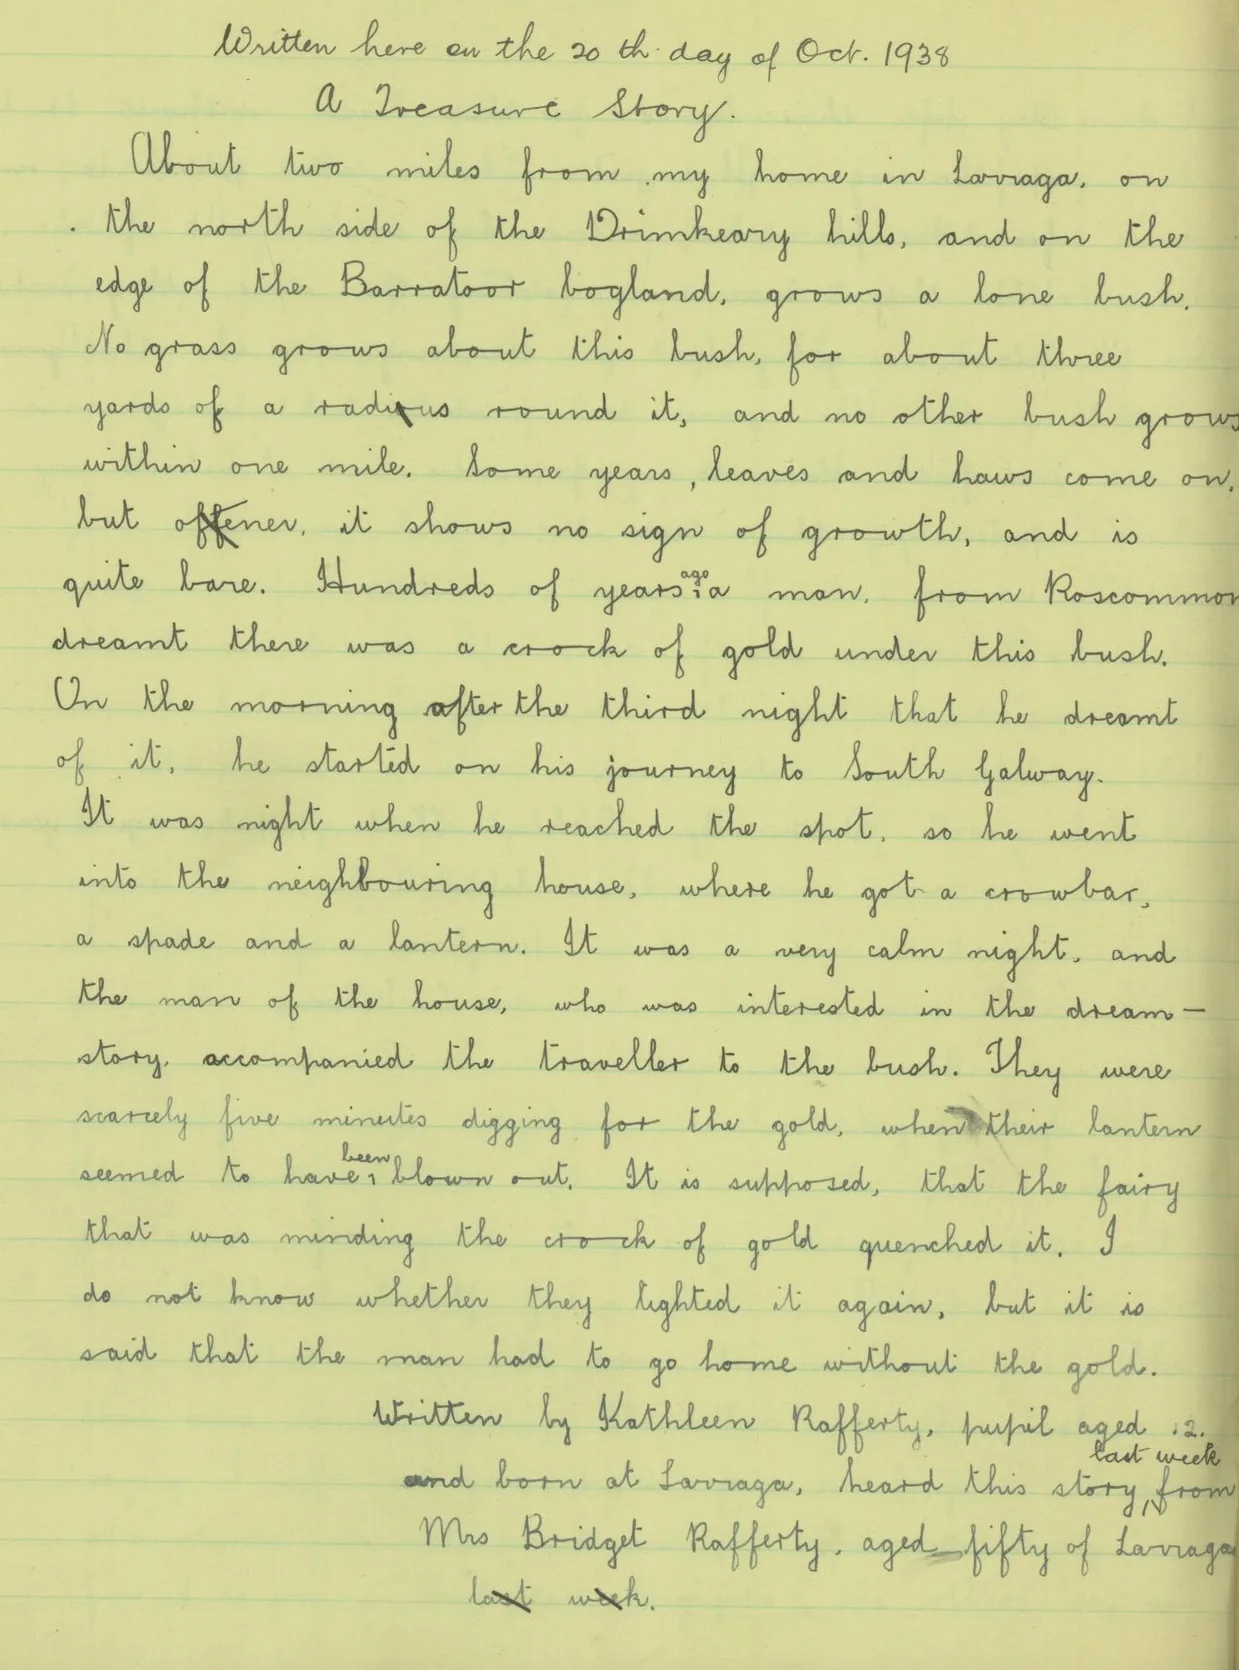 Written here on the 20 th day of Oct. 1938
A Treasure Story.
About two miles from my home in Lavraga, on
the north side of the Drimkeary hills, and on the
edge of the Barratoor bogland, grows a lone bush.
No grass grows about this bush, for about three
yards of a radius round it, and no other bush grows
within one mile. Some years, leaves and haws come on,
but oftener, it shows no sign of growth, and is
quite bare. Hundreds of years ago a man, from Roscommon
dreamt there was a crock of gold under this bush.
On the morning after the third night that he dreamt
of it, he started on his journey to South Galway.
It was night when he reached the spot, so he went
into the neighbouring house, where he got a crowbar,
a spade and a lantern. It was a very calm night, and
the man of the house, who was interested in the dream-
story, accompanied the traveller to the bush. They were
scarcely five minutes digging for the gold, when their lantern
seemed to have been blown out. It is supposed, that the fairy
that was minding the crock of gold quenched it. I
do not know whether they lighted it again, but it is
said that the man had to go home without the gold.
Written by Kathleen Rafferty, pupil aged 12.
and born at Lavraga, heard this story, last week from
Mrs Bridget Rafferty, aged fifty of Lavraga
last week.